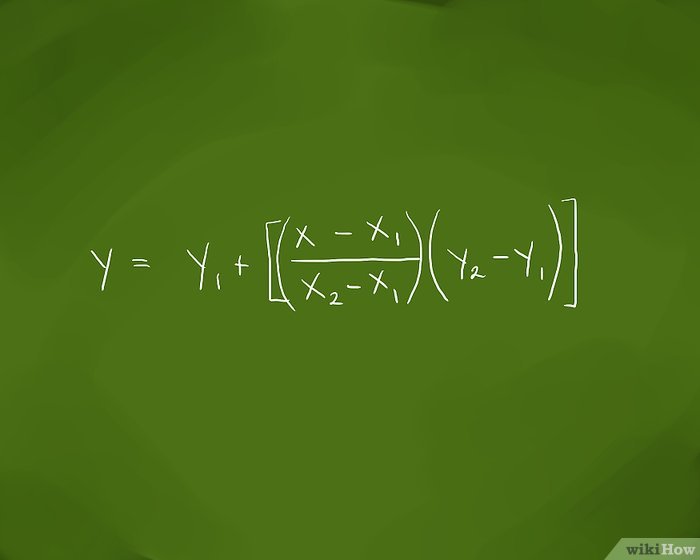 y = y₁ + [((x - x₁)/(x₂ - x₁))(y₂ - y₁)]
wikiHow